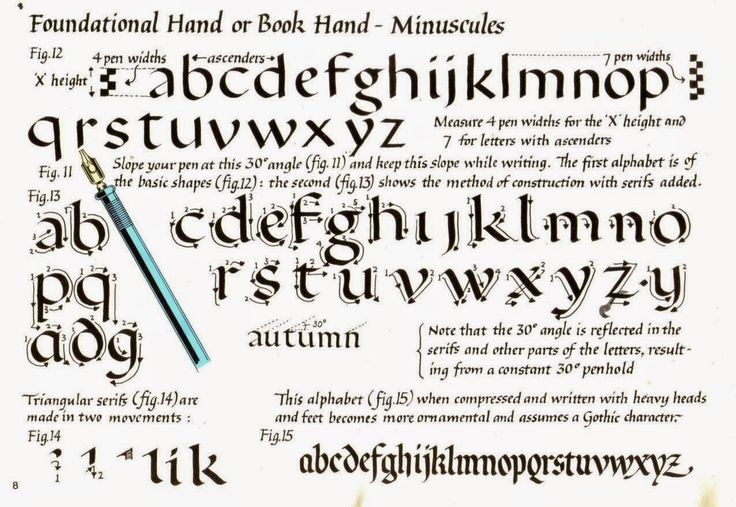 Foundational Hand or Book Hand - Minuscules
Fig.12
4 pen widths ←ascenders→ 7 pen widths
'X' height
abcdefghijklmnop
qrstuvwxyz
Measure 4 pen widths for the 'X' height and
7 for letters with ascenders
Fig. 11
Slope your pen at this 30° angle (fig.11) and keep this slope while writing. The first alphabet is of
the basic shapes (fig.12) : the second (fig.13) shows the method of construction with serifs added.
Fig.13
ab cdefghijklmno
pq rstuvwxyz·y
adg
autumn
30°
Note that the 30° angle is reflected in the
serifs and other parts of the letters, result-
ing from a constant 30° penhold
Triangular serifs (fig.14) are
made in two movements :
This alphabet (fig.15) when compressed and written with heavy heads
and feet becomes more ornamental and assumes a Gothic character.
Fig.14
1 2 lik
Fig.15
abcdefghijklmnopqrstuvwxyz
8